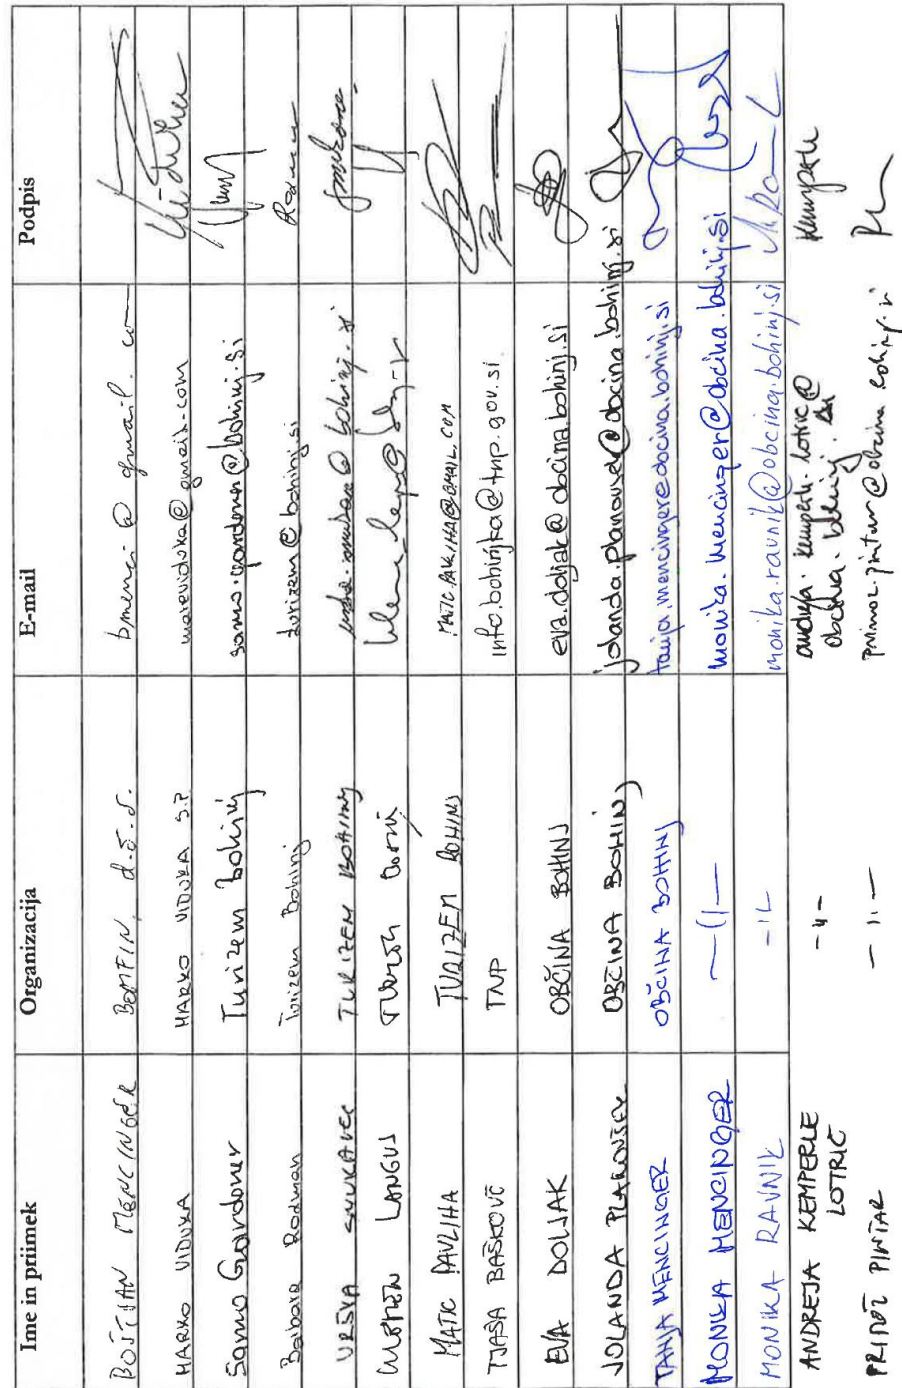 Ime in priimek Organizacija E-mail Podpis
BOŠTJAN MENCINGER BOMFIN, d.o.o. bmenci@gmail.com
MARKO VIDUKA MARKO VIDUKA S.P. mareviduka@gmail.com
Samo Gardener Turizem bohinj samo.gardener@bohinj.si
Barbara Rodman Turizem Bohinj turizem@bohinj.si
URŠKA SMUKAVEC TURIZEM BOHINJ
LANGUS
MATIC PAVLIHA TURIZEM BOHINJ MATIC.PAVLIHA@GMAIL.COM
TJAŠA BAŠKOVČ TNP info.bohinjka@tnp.gov.si
EVA DOLJAK OBČINA BOHINJ eva.doljak@obcina.bohinj.si
JOLANDA PLANOVŠEK OBČINA BOHINJ jolanda.planovsek@obcina.bohinj.si
TANJA MENCINGER OBČINA BOHINJ tanja.mencinger@obcina.bohinj.si
MONIKA MENCINGER —||— monika.mencinger@obcina.bohinj.si
MONIKA RAVNIK -||- monika.ravnik@obcina.bohinj.si
ANDREJA KEMPERLE -||- andreja.kemperle.lotric@
LOTRIČ obcina.bohinj.si
PRIMOŽ PINTAR —||— primoz.pintar@obcina.bohinj.si